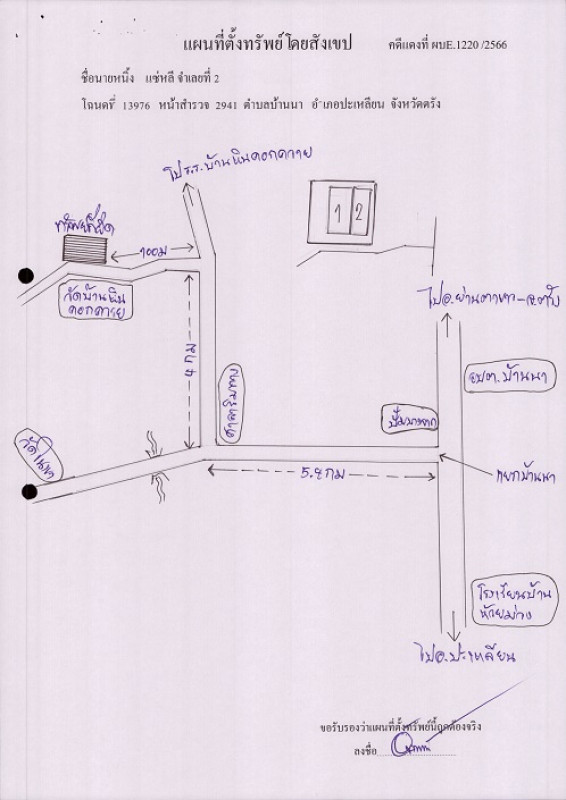 แผนที่ตั้งทรัพย์โดยสังเขป คดีแดงที่ ผบE.1220 /2566
ชื่อนายหนึ้ง แซ่หลี จำเลยที่ 2
โฉนดที่ 13976 หน้าสำรวจ 2941 ตำบลบ้านนา อำเภอปะเหลียน จังหวัดตรัง
ไป ร.ร.บ้านหินคอกควาย
1 2
ทรัพย์ที่ยึด
100ม
วัดบ้านหิน
คอกควาย
ไปอ.ย่านตาขาว-จ.ตรัง
4 กม
ศาลาริมทาง
อบต.บ้านนา
5.2กม
แยกบ้านนา
โรงเรียนบ้าน
ห้วยม่วง
ไปอ.ปะเหลียน
ขอรับรองว่าแผนที่ตั้งทรัพย์นี้ถูกต้องจริง
ลงชื่อ